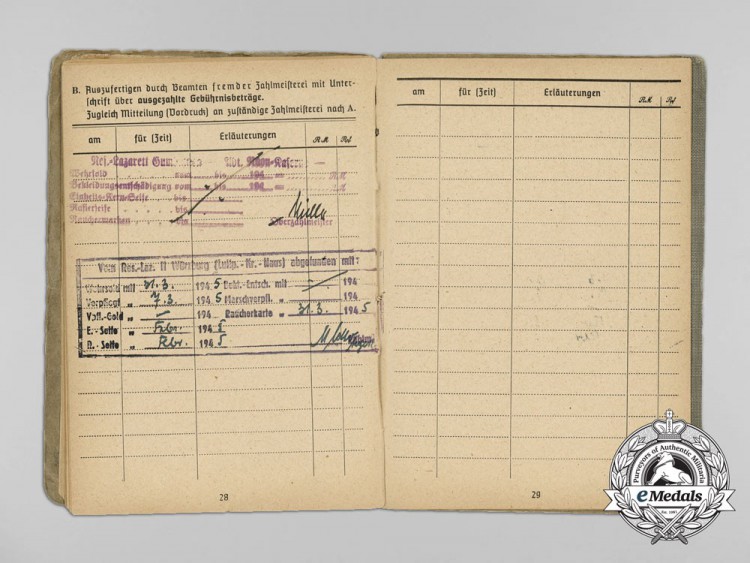 B. Auszufertigen durch Beamten fremder Zahlmeisterei mit Unter-
schrift über ausgezahlte Gebührnisbeträge.
Zugleich Mitteilung (Vordruck) an zuständige Zahlmeisterei nach A.
am für (Zeit) Erläuterungen RM Rpf
Res.-Lazarett Abt.
Wehrsold vom bis 194 = RM
Bekleidungsentschädigung vom bis 194 =
Einheits-Kern-Seife bis
Rasierseife bis
Rauchermarken bis Oberzahlmeister
Vom Res.-Laz. II Würzburg (Luitp.-Kr.-Haus) abgefunden mit:
Wehrsold mit 31.3. 1945 Bekl.-Entsch. mit 194
Verpflegt „ 7.3. 1945 Marschverpfl. „ 194
Vpfl.-Geld „ 194 Raucherkarte „ 31.3. 1945
E.-Seife „ Febr. 1945
R.-Seife „ Febr. 1945
28
am für (Zeit) Erläuterungen RM Rpf
29
Purveyors of Authentic Militaria
eMedals